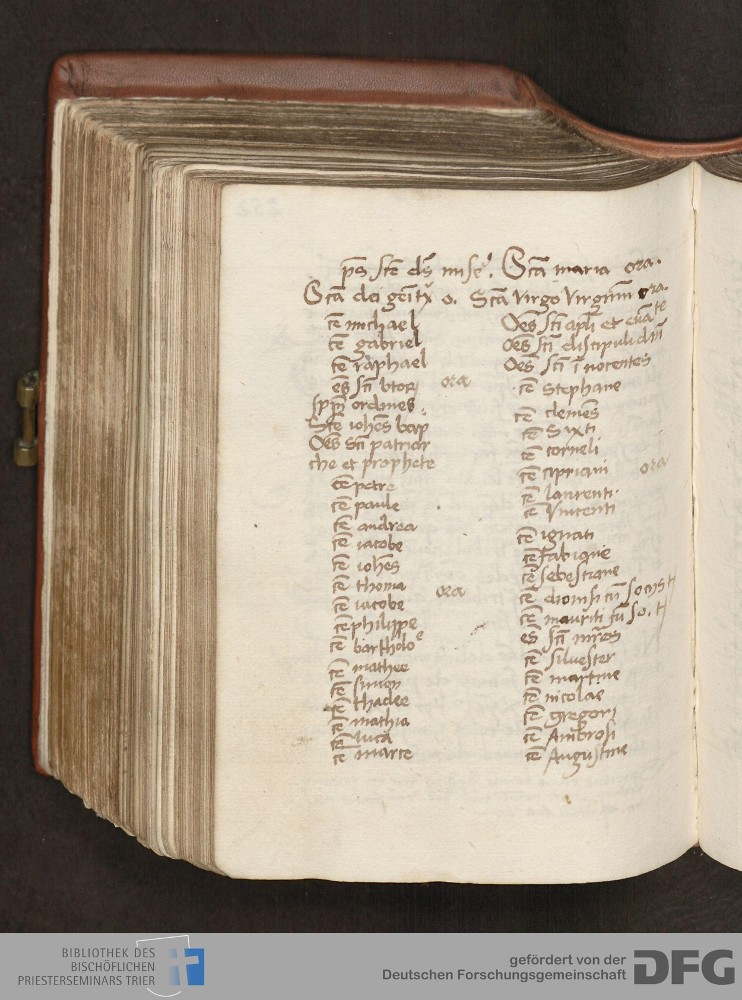 p̄s sc̄e ds̄ mise. Sc̄a maria ora.
Sc̄a dei geīt͛x o. Sc̄a Virgo Virginū ora.
c̄e michael
c̄e gabriel
c̄e raphael
ēs sc̄i btor ora
ordines
Sc̄e ioh̄es bap
Oēs sc̄i patriar
che et prophete
c̄e petre
c̄e paule
c̄e andrea
c̄e iacobe
c̄e ioh̄es
c̄e thoma ora
c̄e iacobe
c̄e philippe
c̄e bartholoᵉ
c̄e mathee
c̄e simon
c̄e thadee
c̄e mathia
c̄e luca
c̄e marce
Oēs sc̄i apl̄i et euāᵗᵉ
Oēs sc̄i discipuli dn̄i
Oēs sc̄i īnocentes
c̄e Stephane
c̄e clemēs
c̄e Sixti
c̄e corneli
c̄e cipriani ora
c̄e laurenti
c̄e Vincenti
c̄e ignati
c̄e fabiane
c̄e sebestiane
c̄e dionisi cū socijs t
c̄e mauriti cū so. t
ēs sc̄i mr̄es
c̄e siluester
c̄e martine
c̄e nicolae
c̄e gregori
c̄e Ambrosi
c̄e Augustine
BIBLIOTHEK DES
BISCHÖFLICHEN
PRIESTERSEMINARS TRIER
gefördert von der
Deutschen Forschungsgemeinschaft
DFG